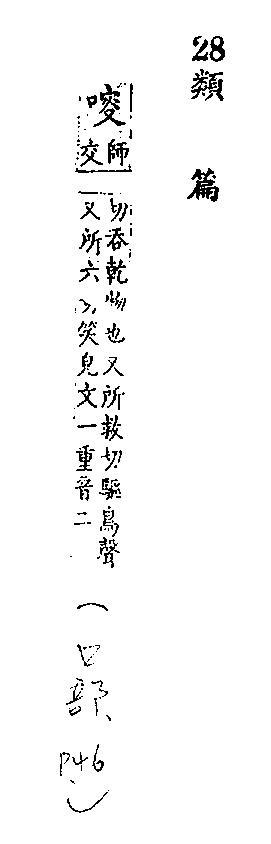 28類篇
㖹師交
切吞乾物也又所救切驅鳥聲
又所六切笑皃文一重音二
(口部P46)